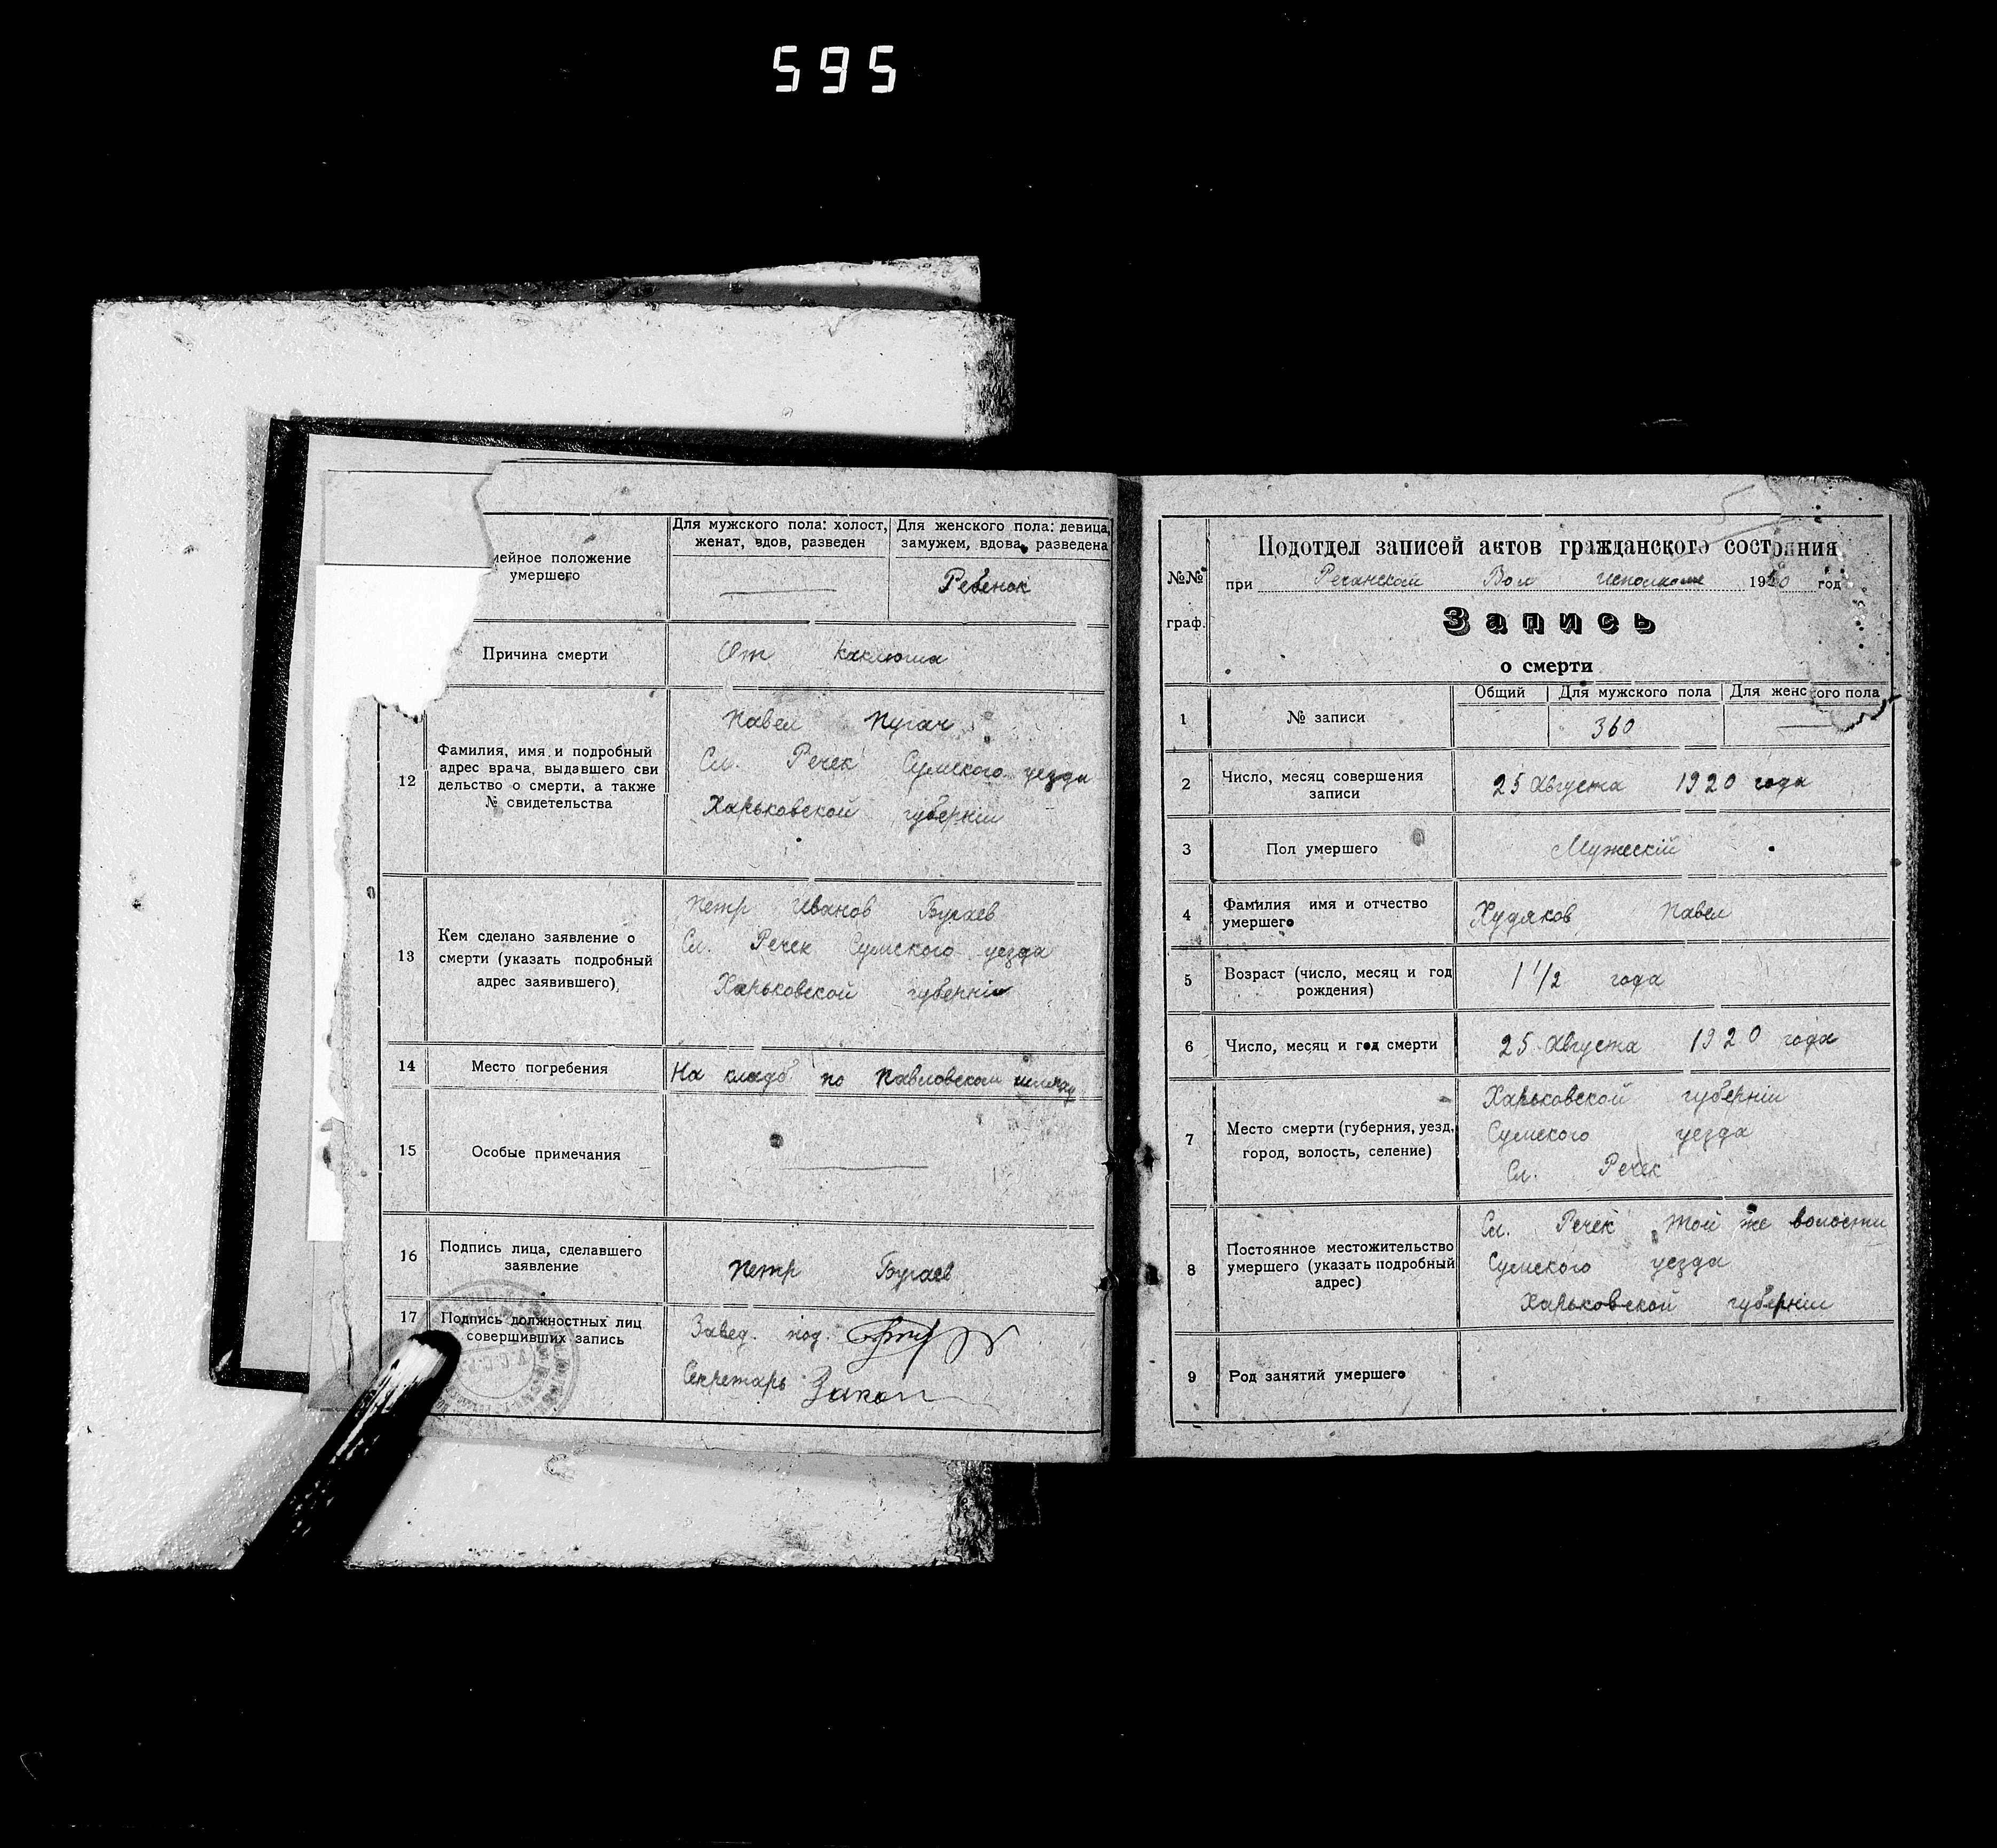 595
мейное положение
умершего
Для мужского пола: холост,
женат, вдов, разведен
Для женского пола: девица,
замужем, вдова, разведена
Ребенок
Причина смерти
От каклюша
12
Фамилия, имя и подробный
адрес врача, выдавшего сви
дельство о смерти, а также
№ свидетельства
Павел Пугач
Сл. Речек Сумского уезда
Харьковской губерніи
13
Кем сделано заявление о
смерти (указать подробный
адрес заявившего)
Петр Иванов Бугаев
Сл. Речек Сумского уезда
Харьковской губерніи
14
Место погребения
На кладб. по Павловском
15
Особые примечания
16
Подпись лица, сделавшего
заявление
Петр Бугаев
17
Подпись должностных лиц
совершивших запись
Завед. под.
Секретарь
5
№№
граф.
Подотдел записей актов гражданского состояния
при Речанском Вол исполкоме 1920 год
Запись
о смерти
Общий
Для мужского пола
Для женского пола
1
№ записи
360
2
Число, месяц совершения
записи
25 Августа 1920 года
3
Пол умершего
Мужескій
4
Фамилия имя и отчество
умершего
Худяков Павел
5
Возраст (число, месяц и год
рождения)
1 1/2 года
6
Число, месяц и год смерти
25 Августа 1920 года
7
Место смерти (губерния, уезд,
город, волость, селение)
Харьковской губерніи
Сумского уезда
Сл. Речек
8
Постоянное местожительство
умершего (указать подробный
адрес)
Сл. Речек той же волости
Сумского уезда
Харьковской губерніи
9
Род занятий умершего